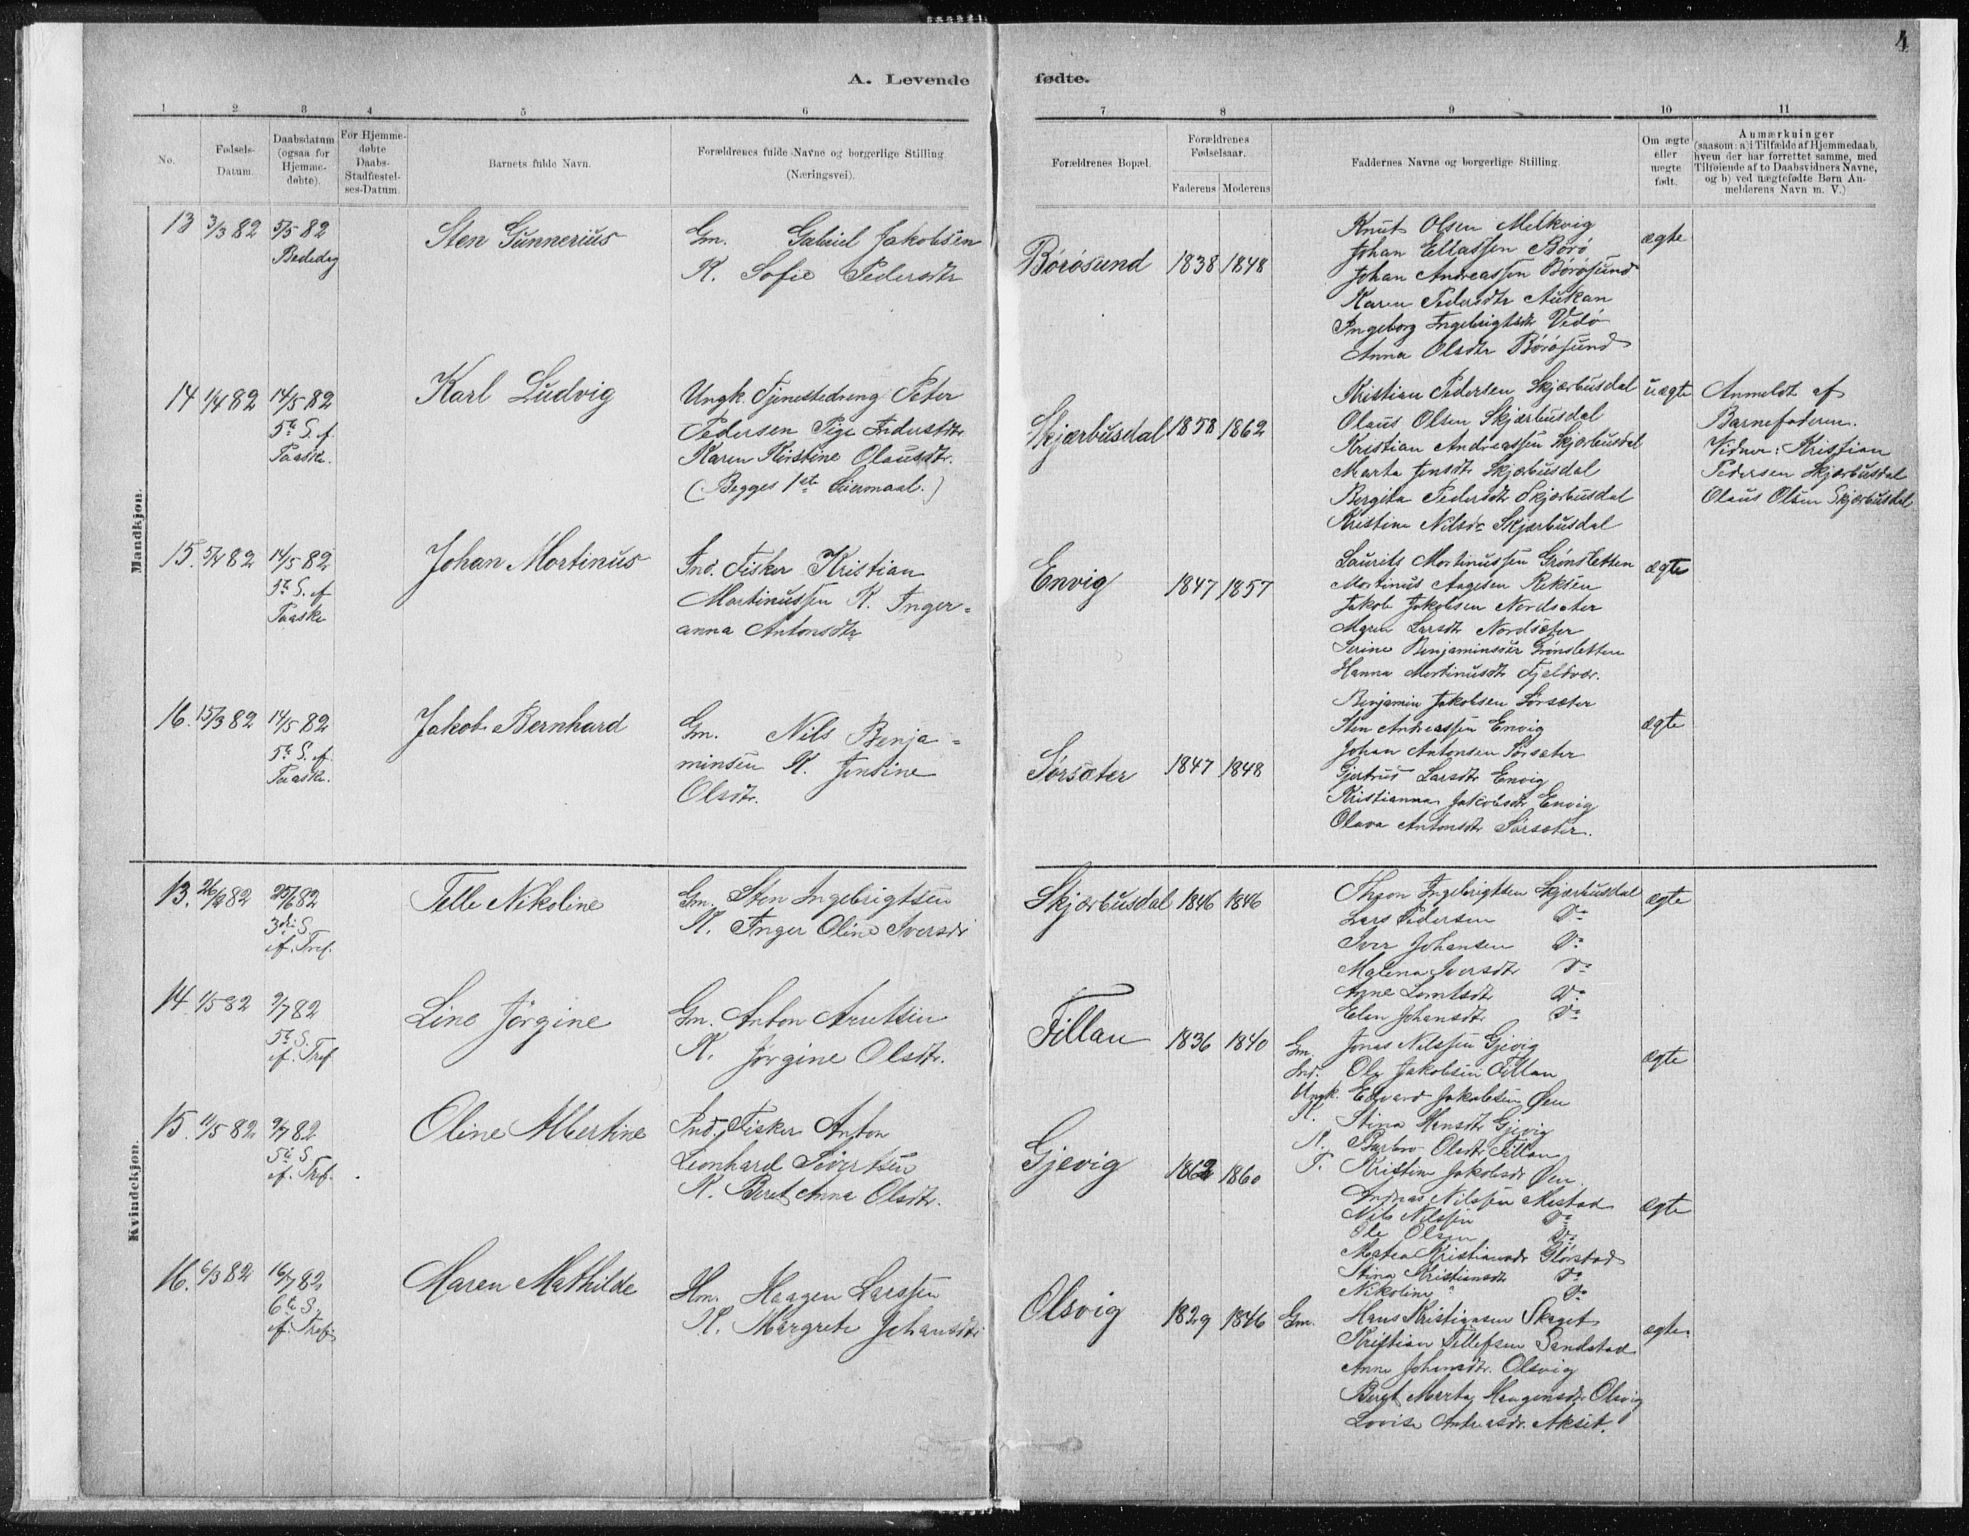 4
A. Levende fødte.
1 2 3 4 5 6 7 8 9 10 11
No.
Fødsels-
Datum.
Daabsdatum
(ogsaa for
Hjemme-
døbte).
For Hjemme-
døbte
Daabs-
Stadfæstel-
ses-Datum.
Barnets fulde Navn.
Forældrenes fulde Navne og borgerlige Stilling
(Næringsvei).
Forældrenes Bopæl.
Forældrenes
Fødselsaar.
Faderens Moderens
Faddernes Navne og borgerlige Stilling.
Om ægte
eller
uægte
født.
Anmærkninger
(saasom: a) i Tilfælde af Hjemmedaab,
hvem der har forrettet samme, med
Tilføiende af to Daabsvidners Navne,
og b) ved uægtefødte Børn An-
melderens Navn m. V.)
Mandkjøn.
13 3/3 82 5/5 82
Bededag
Sten Gunnerius
Gm. Gabriel Jakobsen
K. Sofie Pedersdtr
Børøsund 1838 1848
Knut Olsen Melkvig
Johan Eliassen Børø
Johan Andreassen Børøsund
Karen Pedersdtr Aukan
Ingeborg Ingebrigtsdtr Vedø
Anna Olsdtr Børøsund
ægte
14 1/4 82 14/5 82
5te S. ef.
Paaske.
Karl Ludvig
Ungk. Tjenestedreng Peter
Pedersen Pige Inderstdtr.
Karen Kirstine Olausdtr.
(Begges 1ste Leiermaal.)
Skjærbusdal 1858 1862
Kristian Pedersen Skjærbusdal
Olaus Olsen Skjærbusdal
Kristian Andreassen Skjærbusdal
Marta Jensdtr Skjærbusdal
Bergita Pedersdtr Skjærbusdal
Kristine Nilsdr Skjærbusdal
uægte
Anmeldt af
Barnefaderen.
Vidner: Kristian
Pedersen Skjærbusdal
Olaus Olsen Skjærbusdal
15. 5/4 82 14/5 82
5te S. ef
Paaske
Johan Martinus
Ind. Fisker Kristian
Martinussen K. Inger=
anna Antonsdtr
Envig 1847 1857
Laurits Martinussen Grønsletten
Martinus Aagesen Reksen
Jakob Jakobsen Nordsæter
Maren Larsdtr Nordsæter
Serine Benjaminsdtr Grønsletten
Hanna Martinusdtr Fjeldvær.
ægte
16. 15/3 82 14/5 82
5te S. ef.
Paaske.
Jakob Bernhard
Gm. Nils Benja=
minsen K. Jensine
Olsdtr.
Sørsæter 1847 1848
Benjamin Jakobsen Sørsæter
Sten Andreassen Envig
Johan Antonsen Sørsæter
Gjertrud Larsdtr Envig
Kristianna Jakobsdtr Envig
Olava Antonsdtr Sørsæter.
ægte
Kvindekjøn.
13. 26/2 82 25/6 82
3die S.
ef. Tref.
Telle Nikoline
Gm. Sten Ingebrigtsen
K. Inger Oline Iversdr
Skjærbusdal 1846 1846
Ingebrigtsen Skjærbusdal
Lars Pedersen Do
Iver Johansen Do
Malena Iversdtr Do
Anne Lorntsdtr Do
Elen Johansdtr Do
ægte
14. 1/5 82 9/7 82
5te S.
ef. Tref.
Line Jørgine
Gm. Anton Arntsen
K. Jørgine Olsdtr.
Fillan 1836 1840
Gm. Jonas Nilssen Gjevig
Ind. Ole Jakobsen Fillan
Ungk. Edvard Jakobsen Øen
K. Stina Hansdtr Gjevig
K. Barbro Olsdtr Fillan
P. Kristine Jakobsdr Øen
ægte
15. 11/5 82 9/7 82
5te S.
ef. Tref.
Oline Albertine
Ind. Fisker Anton
Leonhard Sivertsen
K. Beret Anna Olsdtr.
Gjevig 1862 1860
Andreas Nilssen Mastad
Nils Nilssen Do
Ole Olsen Do
Kristiansdr Glørstad
Stina Kristiansdtr Do
Nikoline " Do
ægte
16. 6/3 82 16/7 82
6te S.
ef. Tref.
Maren Mathilde
Hm. Haagen Larssen
K. Margrete Johansdtr
Olsvig 1829 1846
Gm. Hans Kristiansen Skaget
Kristian Tellefsen Sandstad
Anne Johansdtr. Olsvig
Beret Marta Haagensdtr Olsvig
Lovise Andreasdr. Akset.
ægte